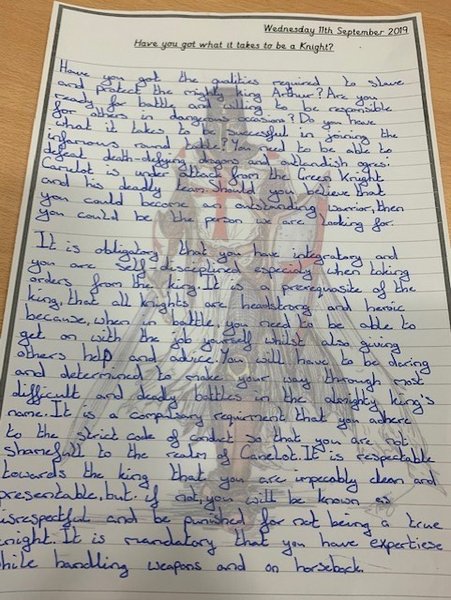 Wednesday 11th September 2019
Have you got what it takes to be a Knight?
Have you got the qualities required to slave
and protect the mighty king Arthur? Are you
ready for battle and willing to be reponsible
for others in dangerous occasion? Do you have
what it takes to be successful in joining the
infamous round table? You need to be able to
defeat death-defying dragons and outlandish ogres.
Camelot is under attack from the Green Knight
and his deadly team. Should you believe that
you could become an outstanding warrior, then
you could be the person we are looking for.
It is obligatory that you have integratory and
you are self-disciplined especialy when taking
orders from the king. It is a prerequosite of the
king, that all knights are headstrong and heroic
because, when in battle, you need to be able to
get on with the job yourself whilst also giving
others help and advice. You will have to be daring
and determined to make your way through most
difficult and deadly battles in the almighty king's
name. It is a compulsary requirment that you adhere
to the strict code of conduct so that you are not
shamefull to the realm of Camelot. It is respectable
towards the king that you are impecably clean and
presentable, but if not, you will be known as
isrespectful and be punished for not being a true
night. It is mandatory that you have expertiese
hile handling weapons and on horseback.